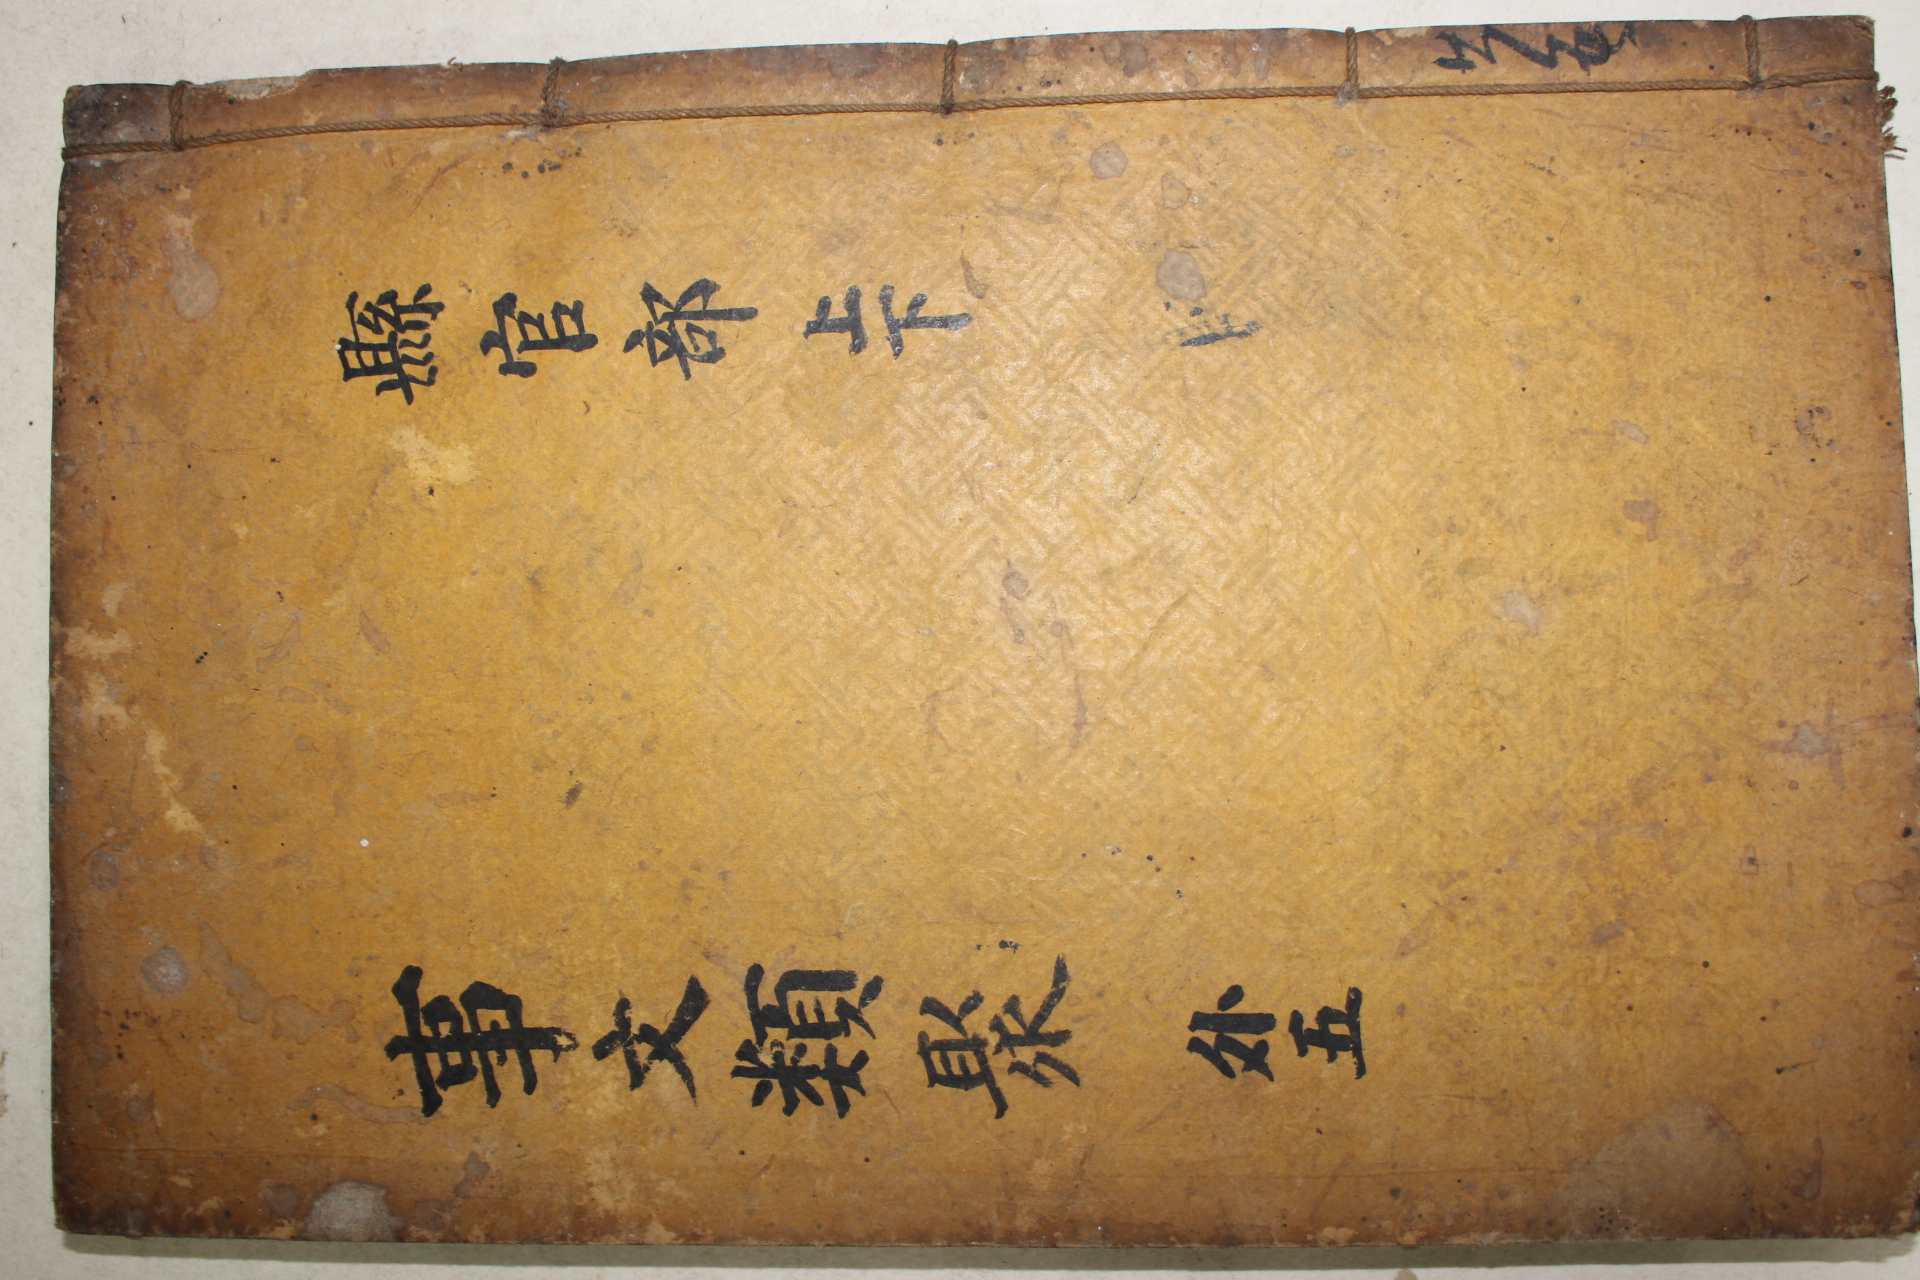 縣官部上下
事文類聚 外五